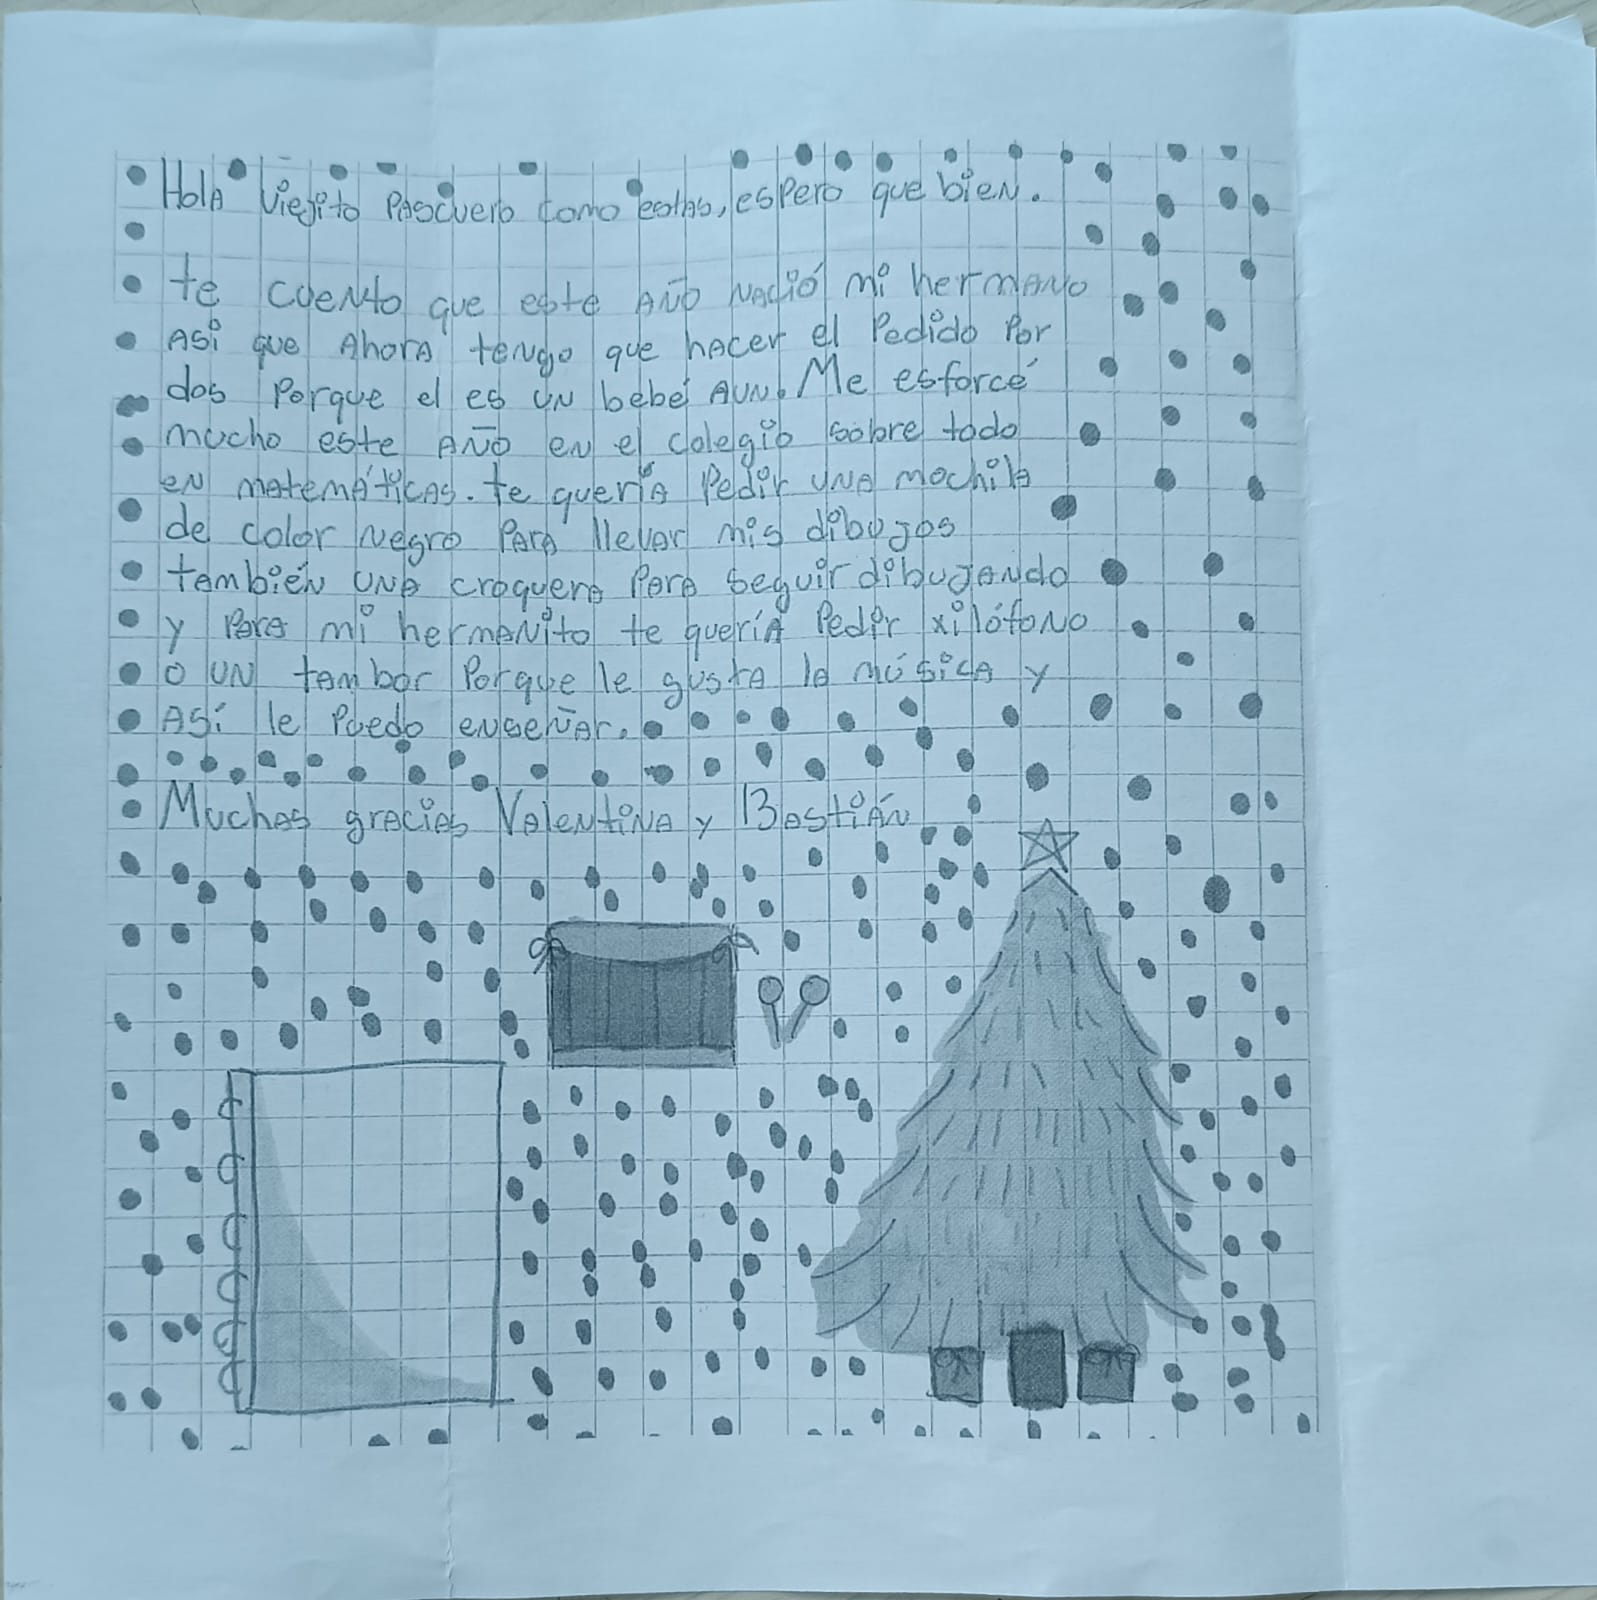 Hola Viejito Pascuero como estas, espero que bien.
te cuento que este año nació mi hermano
Así que Ahora tengo que hacer el Pedido Por
dos Porque el es un bebé aun. Me esforcé
mucho este año en el colegio sobre todo
en matemáticas. te quería Pedir una mochila
de color negro Para llevar mis dibujos
también una croquera Para seguir dibujando
y Para mi hermanito te quería Pedir xilófono
o un tambor Porque le gusta la música y
Así le Puedo enseñar.
Muchas gracias Valentina y Bastián